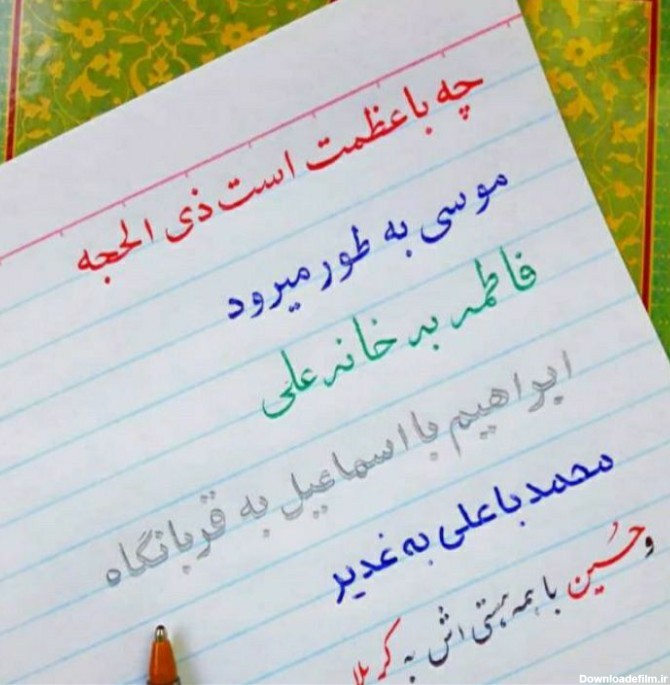 چه باعظمت است ذی الحجه
موسی به طور میرود
فاطمه به خانه علی
ابراهیم با اسماعیل به قربانگاه
محمد با علی به غدیر
و حُسین با همه هستی اش به کربلا
Downloadefilm.ir